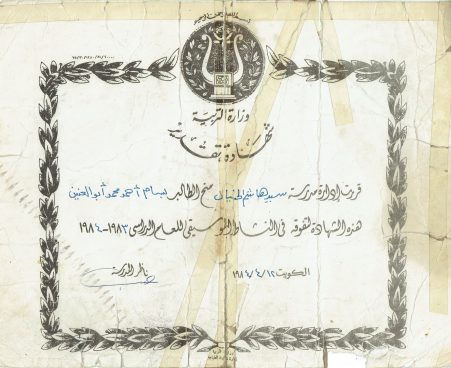 وزارة التربية
شهادة تقدير
قررت إدارة مدرسة سيد هاشم الحنيان منح الطالب بسام أحمد محمد أبو العنين
هذه الشهادة لتفوقه في النشاط الموسيقي للعام الدراسي ١٩٨٣-١٩٨٤
الكويت ١٢/٤/١٩٨٤
ناظر المدرسة